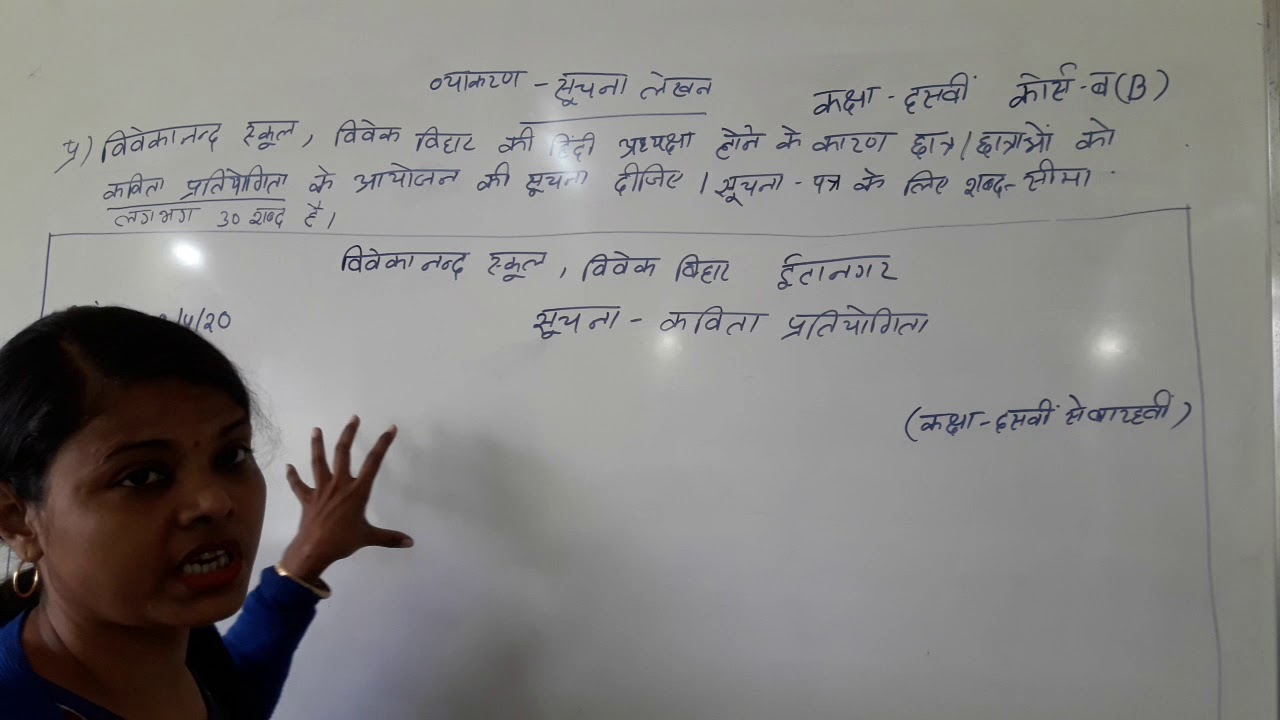 व्याकरण - सूचना लेखन
कक्षा - दसवीं कोर्स - ब (B)
प्र) विवेकानन्द स्कूल, विवेक विहार की हिंदी अध्यक्षा होने के कारण छात्र/छात्राओं को
कविता प्रतियोगिता के आयोजन की सूचना दीजिए। सूचना - पत्र के लिए शब्द - सीमा
लगभग 30 शब्द है।
विवेकानन्द स्कूल, विवेक विहार ईटानगर
/4/20
सूचना - कविता प्रतियोगिता
(कक्षा - दसवीं से बारहवीं)